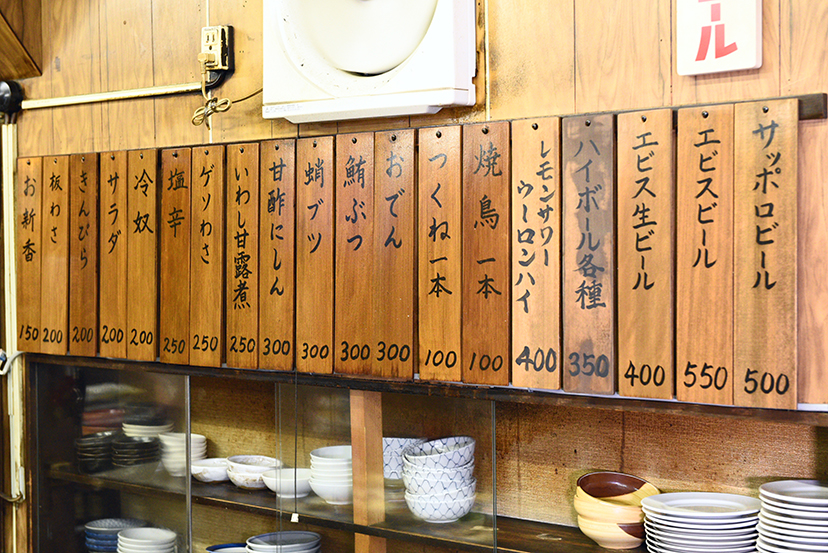 ール
サッポロビール
500
エビスビール
550
エビス生ビール
400
ハイボール各種
350
レモンサワー
ウーロンハイ
400
焼鳥一本
100
つくね一本
100
おでん
300
鮪ぶつ
300
蛸ブツ
300
甘酢にしん
300
いわし甘露煮
250
ゲソわさ
250
塩辛
250
冷奴
200
サラダ
200
きんぴら
200
板わさ
200
お新香
150